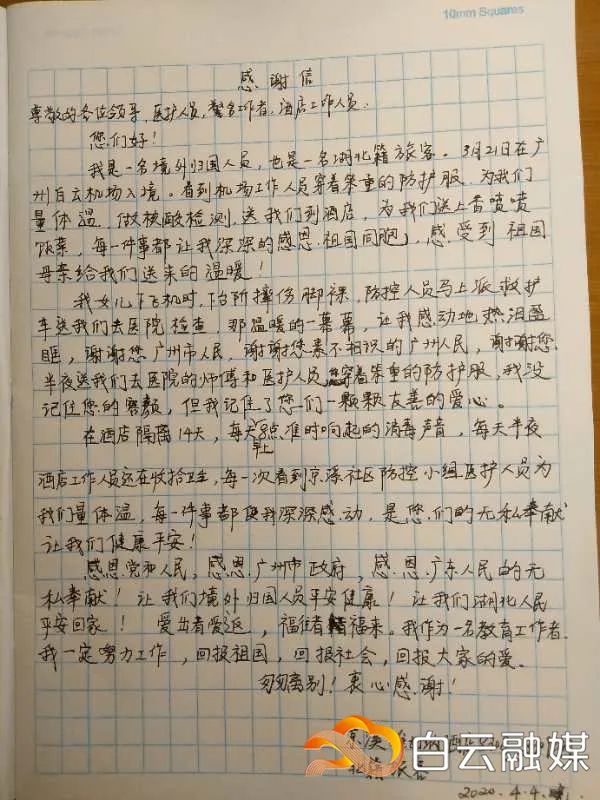 10mm Squares
感谢信
尊敬的各位领导，医护人员，警务工作者，酒店工作人员，
您们好！
我是一名境外归国人员，也是一名湖北籍旅客。3月21日在广
州白云机场入境。看到机场工作人员穿着笨重的防护服，为我们
量体温，做核酸检测，送我们到酒店，为我们送上香喷喷
饭菜，每一件事都让我深深的感恩祖国同胞，感受到祖国
母亲给我们送来的温暖！
我女儿下飞机时，下台阶摔伤脚裸，防控人员马上派救护
车送我们去医院检查，那温暖的一幕幕，让我感动地热泪盈
眶，谢谢您广州市人民，谢谢您素不相识的广州人民，谢谢您
半夜送我们去医院的师傅和医护人员，穿着笨重的防护服，我没
记住您的容颜，但我记住了您们一颗颗友善的爱心。
在酒店隔离14天，每天早上8点准时响起的消毒声音，每天半夜
酒店工作人员还在收拾卫生，每一次看到京溪社区防控小组医护人员为
我们量体温，每一件事都使我深深感动，是您们的无私奉献
让我们健康平安！
感恩党和人民，感恩广州市政府，感恩广东人民的无
私奉献！让我们境外归国人员平安健康！让我们湖北人民
平安回家！爱出者爱返，福往者福来。我作为一名教育工作者，
我一定努力工作，回报祖国，回报社会，回报大家的爱。
匆匆离别！衷心感谢！
京溪
白云融媒
2020.4.4